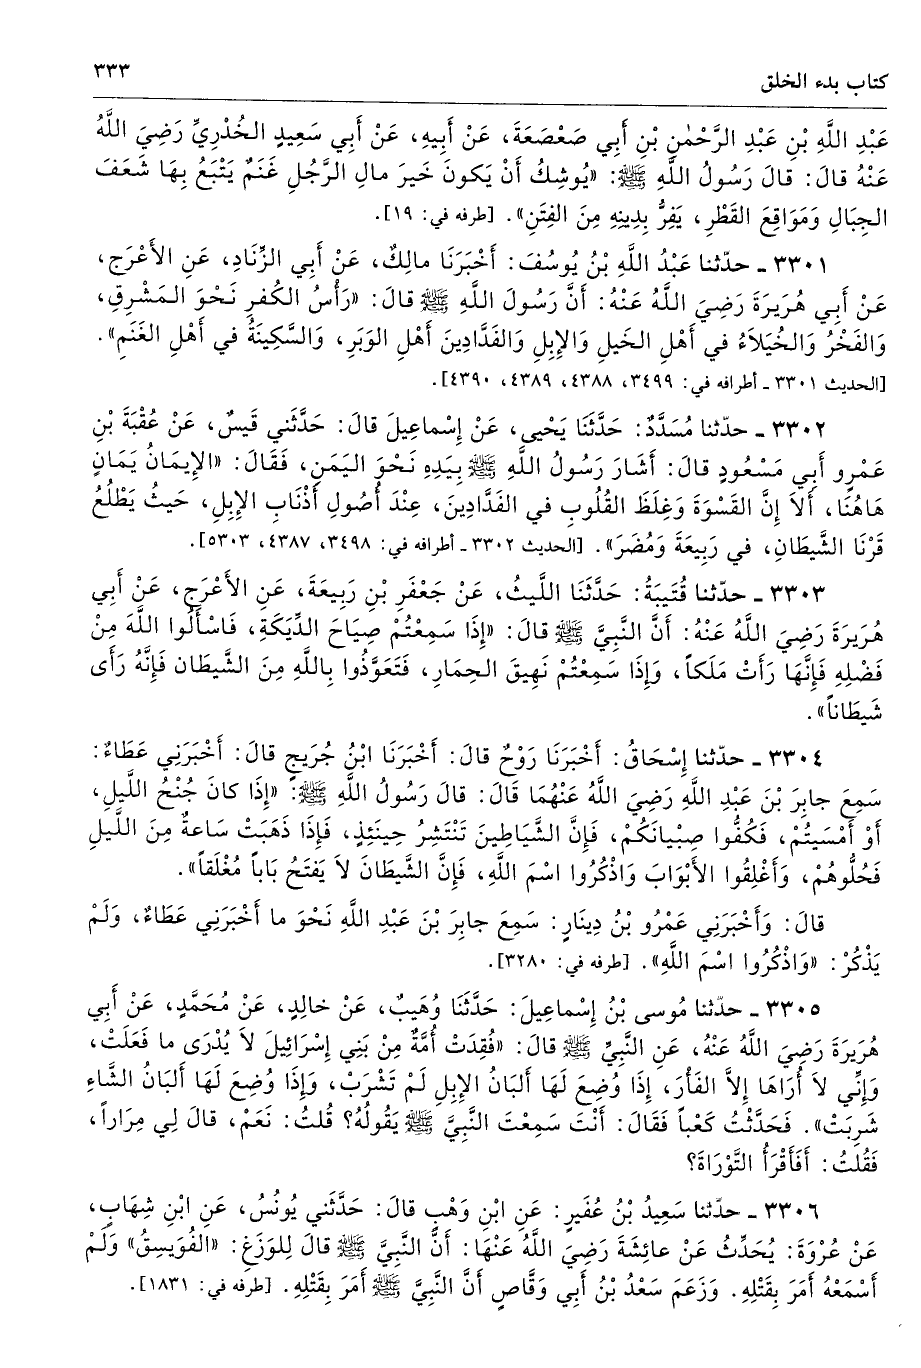 كتاب بدء الخلق
٣٣٣
عَبْدِ اللَّهِ بْنِ عَبْدِ الرَّحْمٰنِ بْنِ أَبِي صَعْصَعَةَ، عَنْ أَبِيهِ، عَنْ أَبِي سَعِيدٍ الخُدْرِيِّ رَضِيَ اللَّهُ
عَنْهُ قالَ: قالَ رَسُولُ اللَّهِ ﷺ: «يُوشِكُ أَنْ يَكونَ خَيرَ مالِ الرَّجُلِ غَنَمٌ يَتْبَعُ بِهَا شَعَفَ
الجِبَالِ وَمَوَاقِعَ القَطْرِ، يَفِرُّ بِدِينِهِ مِنَ الفِتَنِ». [طرفه في: ١٩].
٣٣٠١ ـ حدّثنا عَبْدُ اللَّهِ بْنُ يُوسُفَ: أَخْبَرَنَا مالِكٌ، عَنْ أَبِي الزِّنَادِ، عَنِ الأَعْرَجِ،
عَنْ أَبِي هُرَيرَةَ رَضِيَ اللَّهُ عَنْهُ: أَنَّ رَسُولَ اللَّهِ ﷺ قالَ: «رَأْسُ الكُفرِ نَحْوَ المَشْرِقِ،
وَالفَخْرُ وَالخُيَلاَءُ في أَهْلِ الخَيلِ وَالإِبِلِ وَالفَدَّادِينَ أَهْلِ الوَبَرِ، وَالسَّكِينَةُ في أَهْلِ الغَنَمِ».
[الحديث ٣٣٠١ ـ أطرافه في: ٣٤٩٩، ٤٣٨٨، ٤٣٨٩، ٤٣٩٠].
٣٣٠٢ ـ حدّثنا مُسَدَّدٌ: حَدَّثَنَا يَحْيى، عَنْ إِسْماعِيلَ قالَ: حَدَّثَني قَيسٌ، عَنْ عُقْبَةَ بْنِ
عَمْرِو أَبِي مَسْعُودٍ قالَ: أَشَارَ رَسُولُ اللَّهِ ﷺ بِيَدِهِ نَحْوَ اليَمَنِ، فَقَالَ: «الإِيمَانُ يَمَانٍ
هَاهُنَا، أَلاَ إِنَّ القَسْوَةَ وَغِلَظَ القُلُوبِ في الفَدَّادِينَ، عِنْدَ أُصُولِ أَذْنَابِ الإِبِلِ، حَيثُ يَطْلُعُ
قَرْنَا الشَّيطَانِ، في رَبِيعَةَ وَمُضَرَ». [الحديث ٣٣٠٢ ـ أطرافه في: ٣٤٩٨، ٤٣٨٧، ٥٣٠٣].
٣٣٠٣ ـ حدّثنا قُتَيبَةُ: حَدَّثَنَا اللَّيثُ، عَنْ جَعْفَرِ بْنِ رَبِيعَةَ، عَنِ الأَعْرَجِ، عَنْ أَبِي
هُرَيرَةَ رَضِيَ اللَّهُ عَنْهُ: أَنَّ النَّبِيَّ ﷺ قالَ: «إِذَا سَمِعْتُمْ صِيَاحَ الدِّيَكَةِ، فَاسْأَلُوا اللَّهَ مِنْ
فَضْلِهِ فَإِنَّهَا رَأَتْ مَلَكاً، وَإِذَا سَمِعْتُمْ نَهِيقَ الحِمَارِ، فَتَعَوَّذُوا بِاللَّهِ مِنَ الشَّيطَان فَإِنَّهُ رَأَى
شَيطَاناً».
٣٣٠٤ ـ حدّثنا إِسْحَاقُ: أَخْبَرَنَا رَوْحٌ قالَ: أَخْبَرَنَا ابْنُ جُرَيجٍ قالَ: أَخْبَرَنِي عَطَاءٌ:
سَمِعَ جابِرَ بْنَ عَبْدِ اللَّهِ رَضِيَ اللَّهُ عَنْهُمَا قَالَ: قالَ رَسُولُ اللَّهِ ﷺ: «إِذَا كانَ جُنْحُ اللَّيلِ،
أَوْ أَمْسَيتُمْ، فَكُفُّوا صِبْيَانَكُمْ، فَإِنَّ الشَّيَاطِينَ تَنْتَشِرُ حِينَئِذٍ، فَإِذَا ذَهَبَتْ سَاعةٌ مِنَ اللَّيلِ
فَحُلُّوهُمْ، وَأَغْلِقُوا الأَبْوَابَ وَاذْكُرُوا اسْمَ اللَّهِ، فَإِنَّ الشَّيطَانَ لاَ يَفتَحُ بَاباً مُغْلَقاً».
قالَ: وَأَخْبَرَنِي عَمْرُو بْنُ دِينَارٍ: سَمِعَ جابِرَ بْنَ عَبْدِ اللَّهِ نَحْوَ ما أَخْبَرَنِي عَطَاءٌ، وَلَمْ
يَذْكُرْ: «وَاذْكُرُوا اسْمَ اللَّهِ». [طرفه في: ٣٢٨٠].
٣٣٠٥ ـ حدّثنا مُوسى بْنُ إِسْماعِيلَ: حَدَّثَنَا وُهَيبٌ، عَنْ خالِدٍ، عَنْ مُحَمَّدٍ، عَنْ أَبِي
هُرَيرَةَ رَضِيَ اللَّهُ عَنْهُ، عَنِ النَّبِيِّ ﷺ قالَ: «فُقِدَتْ أُمَّةٌ مِنْ بَنِي إِسْرَائِيلَ لاَ يُدْرَى ما فَعَلَتْ،
وَإِنِّي لاَ أُرَاهَا إِلاَّ الفَأْرَ، إِذَا وُضِعَ لَهَا أَلبَانُ الإِبِلِ لَمْ تَشْرَبْ، وَإِذَا وُضِعَ لَهَا أَلبَانُ الشَّاءِ
شَرِبَتْ». فَحَدَّثْتُ كَعْباً فَقَالَ: أَنْتَ سَمِعْتَ النَّبِيَّ ﷺ يَقُولُهُ؟ قُلتُ: نَعَمْ، قالَ لِي مِرَاراً،
فَقُلتُ: أَفَأَقْرَأُ التَّوْرَاةَ؟
٣٣٠٦ ـ حدّثنا سَعِيدُ بْنُ عُفَيرٍ: عَنِ ابْنِ وَهْبٍ قالَ: حَدَّثَني يُونُسُ، عَنِ ابْنِ شِهَابٍ،
عَنْ عُرْوَةَ: يُحَدِّثُ عَنْ عائِشَةَ رَضِيَ اللَّهُ عَنْهَا: أَنَّ النَّبِيَّ ﷺ قالَ لِلوَزَغِ: «الفُوَيسِقُ» وَلَمْ
أَسْمَعْهُ أَمَرَ بِقَتْلِهِ. وَزَعَمَ سَعْدُ بْنُ أَبِي وَقَّاصٍ أَنَّ النَّبِيَّ ﷺ أَمَرَ بِقَتْلِهِ. [طرفه في: ١٨٣١].